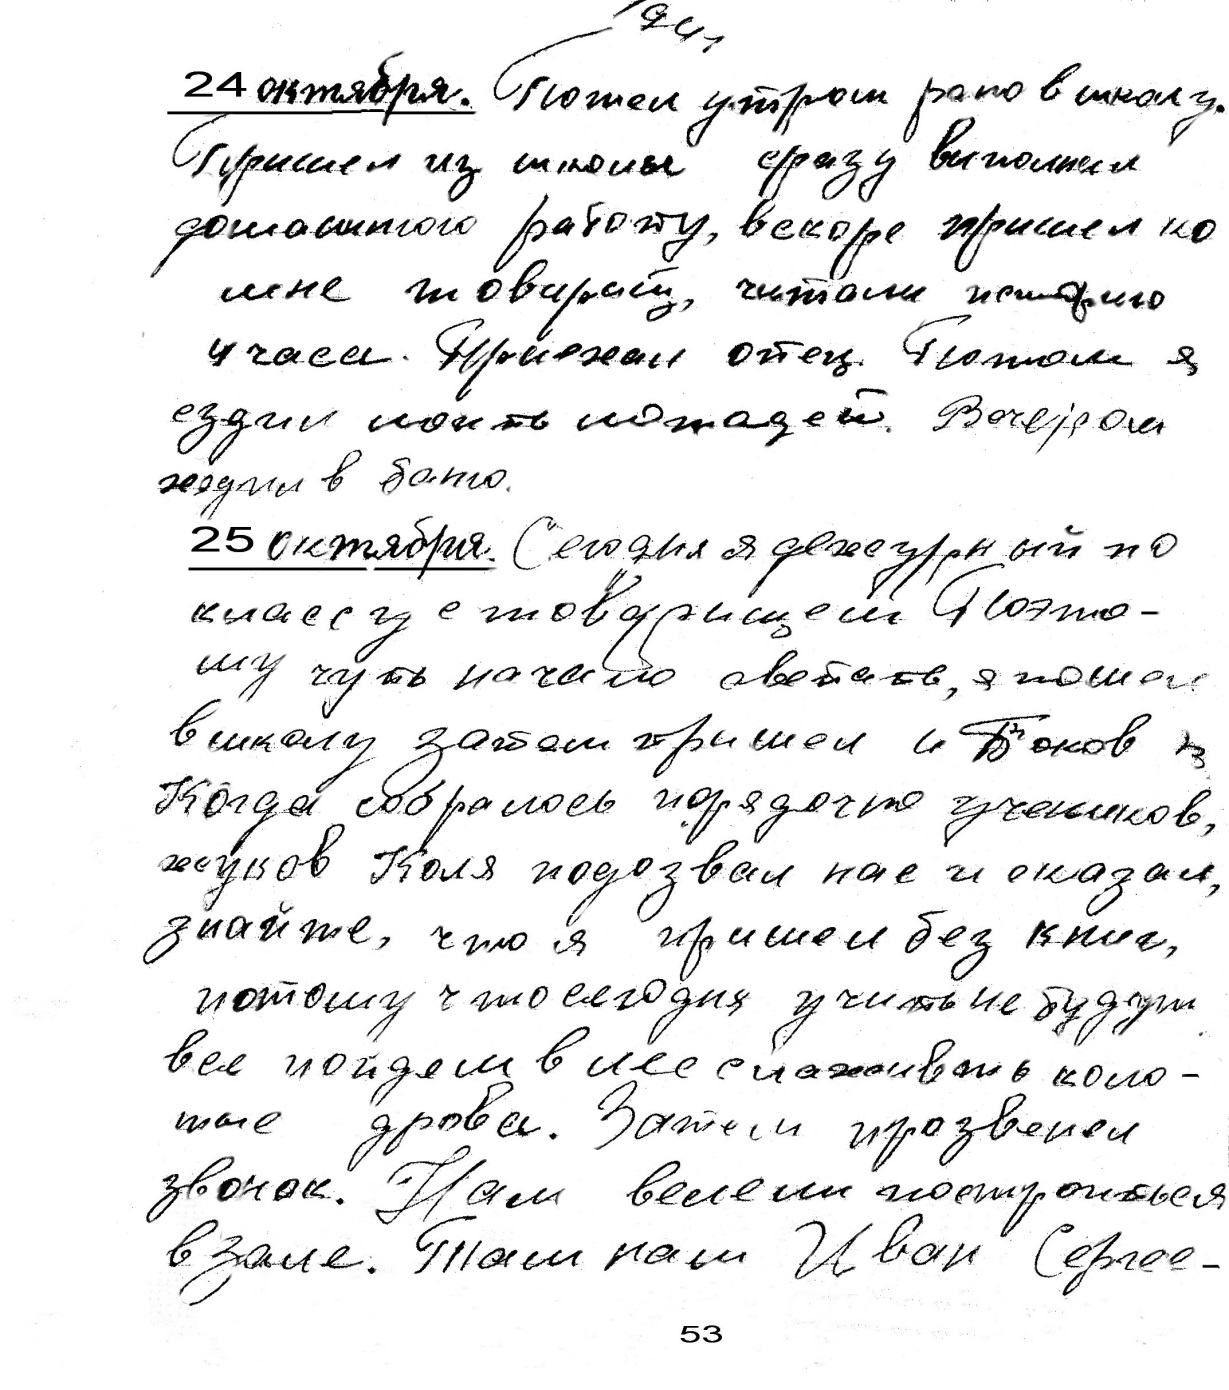 1941
24 октября. Пошел утром рано в школу.
Пришел из школы сразу выполнил
домашнюю работу, вскоре пришел ко
мне товарищ, читали историю
4 часа. Приехал отец. Потом я
ездил поить лошадей. Вечером
ходил в баню.
25 октября. Сегодня я дежурный по
классу с товарищем Поэто-
му чуть начало светать, я пошел
в школу затем пришел и Боков
Когда собралось порядочно учеников,
жуков Коля подозвал нас и сказал,
знайте, что я пришел без книг,
потому что сегодня учить не будут
все пойдем в лес стаскивать коло-
тые дрова. Затем прозвенел
звонок. Нам велели построиться
в зале. Там нам Иван Сергее-
53